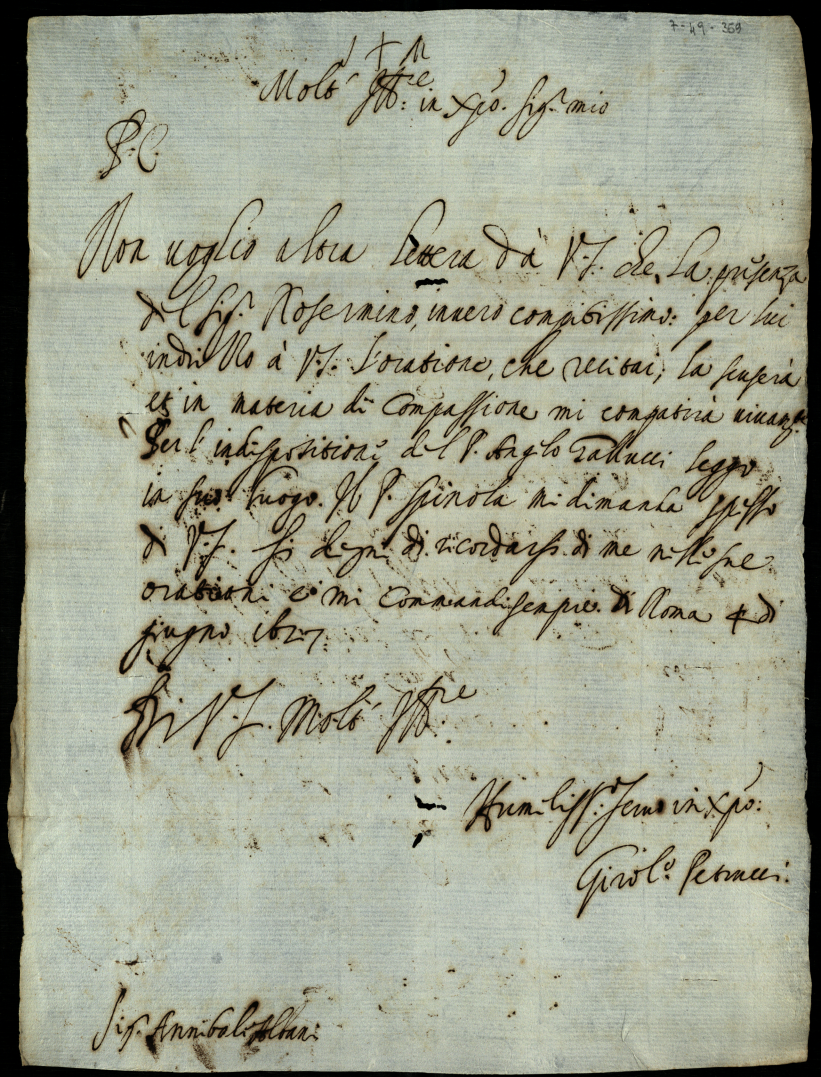 7-49-359
J + M
Molt' Ill.re in Xpo. Sig.r mio
P. C.
Non voglio altra lettera dà V.S. che la presenza
del Sig.r Rosermino, invero compitissimo: per lui
indrizzo à V.S. l'oratione, che recitai, la scuserà
et in materia di Compassione mi compatirà
Per l'indispositione del P. Anglo Gallucci leggo
in suo luogo. Il P. Spinola mi dimanda spesso
di V.S. si degni di ricordarsi di me nelle sue
orationi e mi commandi sempre. Di Roma 4 di
giugno 1627.
Di V.S. Molt' Ill.re
Humiliss.o servo in Xpo:
Girol.o Petrucci.
Sig.r Annibale Albani